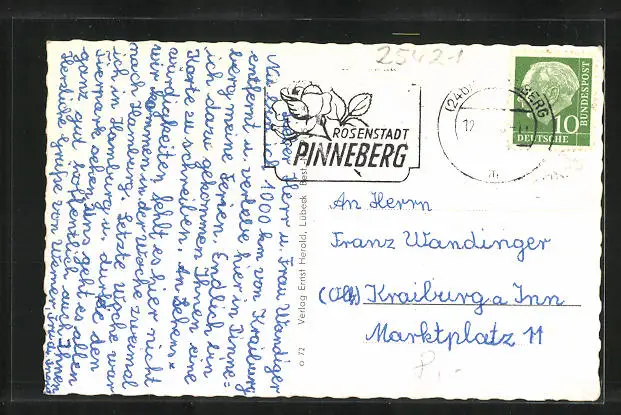 25421
Lieber Herr u. Frau Wandiger
Nun sind wir 1000 km von Kraiburg
entfernt u. verlebe hier in Pinne=
berg meine Ferien. Endlich bin
ich dazu gekommen Ihnen eine
Karte zu schreiben. An Sehens=
würdigkeiten fehlt es hier nicht
wir kommen in der Woche zweimal
nach Hamburg. Letzte Woche war
ich in Hamburg u. durfte den
Tierpark sehen. Uns geht es allen
ganz gut hoffentlich auch Ihnen
Herzliche Grüße von
ROSENSTADT
PINNEBERG
(24b
BERG
12
DEUTSCHE
BUNDESPOST
10
Verlag Ernst Herold, Lübeck
o 72
An Herrn
Franz Wandinger
Kraiburg a Inn
Marktplatz 11
P.-